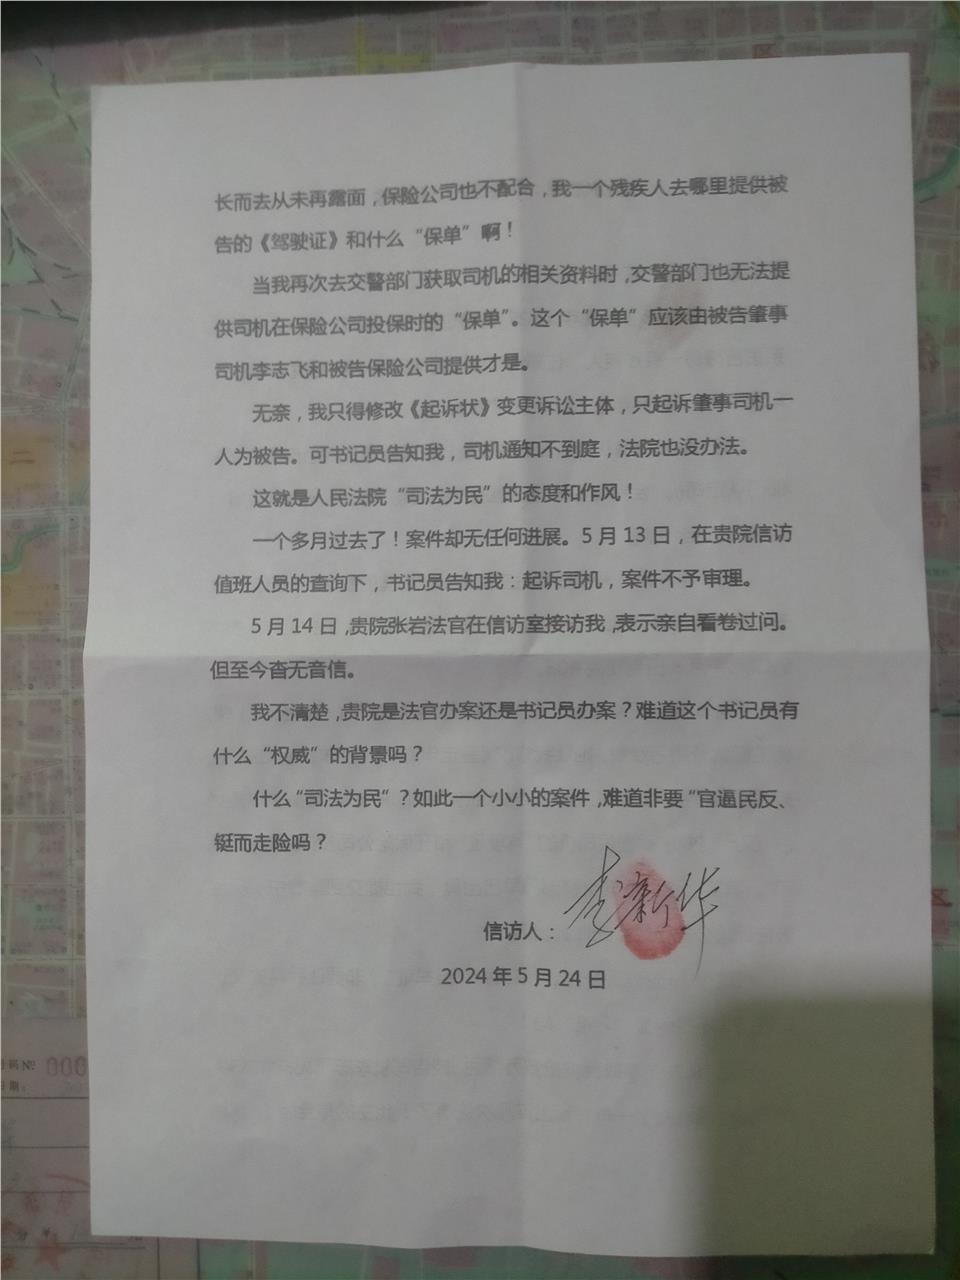 长而去从未再露面，保险公司也不配合，我一个残疾人去哪里提供被
告的《驾驶证》和什么“保单”啊！
当我再次去交警部门获取司机的相关资料时，交警部门也无法提
供司机在保险公司投保时的“保单”。这个“保单”应该由被告肇事
司机李志飞和被告保险公司提供才是。
无奈，我只得修改《起诉状》变更诉讼主体，只起诉肇事司机一
人为被告。可书记员告知我，司机通知不到庭，法院也没办法。
这就是人民法院“司法为民”的态度和作风！
一个多月过去了！案件却无任何进展。5月13日，在贵院信访
值班人员的查询下，书记员告知我：起诉司机，案件不予审理。
5月14日，贵院张岩法官在信访室接访我，表示亲自看卷过问。
但至今杳无音信。
我不清楚，贵院是法官办案还是书记员办案？难道这个书记员有
什么“权威”的背景吗？
什么“司法为民”？如此一个小小的案件，难道非要“官逼民反、
铤而走险吗？
信访人：李新华
2024年5月24日
号码№ 000
日期：